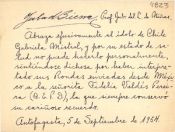 4823
Prof. Jub. del C. de Minas.
Abraza afectivamente al ídolo de Chile
Gabriela Mistral, y por su estado de sa-
lud no puede hacerlo personalmente,
sintiéndose dichoso por haber interpre-
tado sus Rondas enviadas desde Méxi-
co a la señorita Fidelia Valdés Pereira
(Q.E.P.D), de que siempre conservó
su cariñoso recuerdo.
Antofagasta, 5 de Septiembre de 1954.